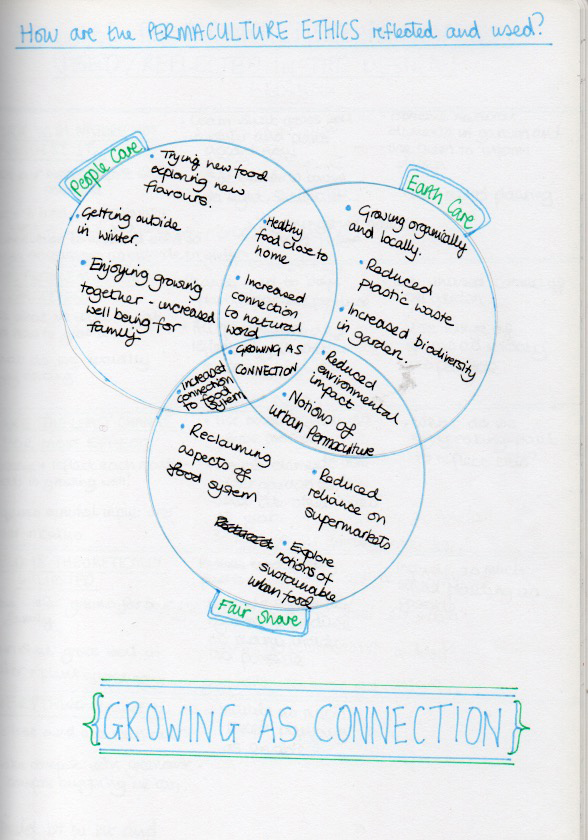 How are the PERMACULTURE ETHICS reflected and used?
People Care
• Trying new food
exploring new
flavours.
• Getting outside
in winter.
• Enjoying growing
together - increased
well being for
family
Earth Care
• Growing organically
and locally.
• Reduced
plastic waste
• Increased biodiversity
in garden.
• Healthy
food close to
home
• Increased
connection
to natural
word
• GROWING AS
CONNECTION
• Increased
connection
to food
system
• Reduced
environmental
impact
• Notions of
urban Permaculture
• Reclaiming
aspects of
food system
• Reduced
reliance on
supermarkets
• Explore
notions of
sustainable
urban food
Fair Share
{GROWING AS CONNECTION}